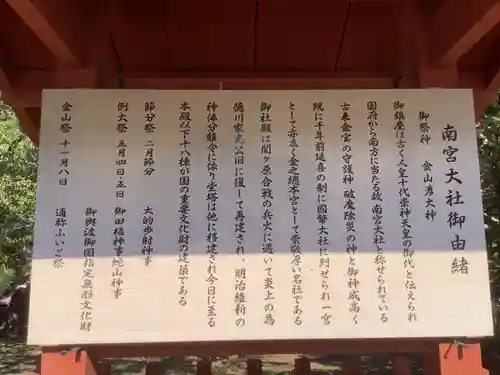 南宮大社御由緒
御祭神 金山彦大神
御鎮座は古く人皇十代崇神天皇の御代と伝えられ
国府から南方に当たる故、南宮大社と称せられている
古来金宮の守護神 破魔除災の神と御神威高く
既に千年前延喜の制に國幣大社に列せられ一宮
として亦広く金之總本宮として崇敬厚い名社である
御社殿は関ヶ原合戦の兵火に遇いて炎上の為
徳川家光公旧に復して再建され、明治維新の
神佛分離令に依り堂塔は他に移建され今日に至る
本殿以下十八棟が国の重要文化財の建築である
節分祭 二月節分 大的歩射神事
例大祭 五月四日・五日 御田植神事蛇山神事
御輿渡御国指定無形文化財
金山祭 十一月八日 通称ふいご祭